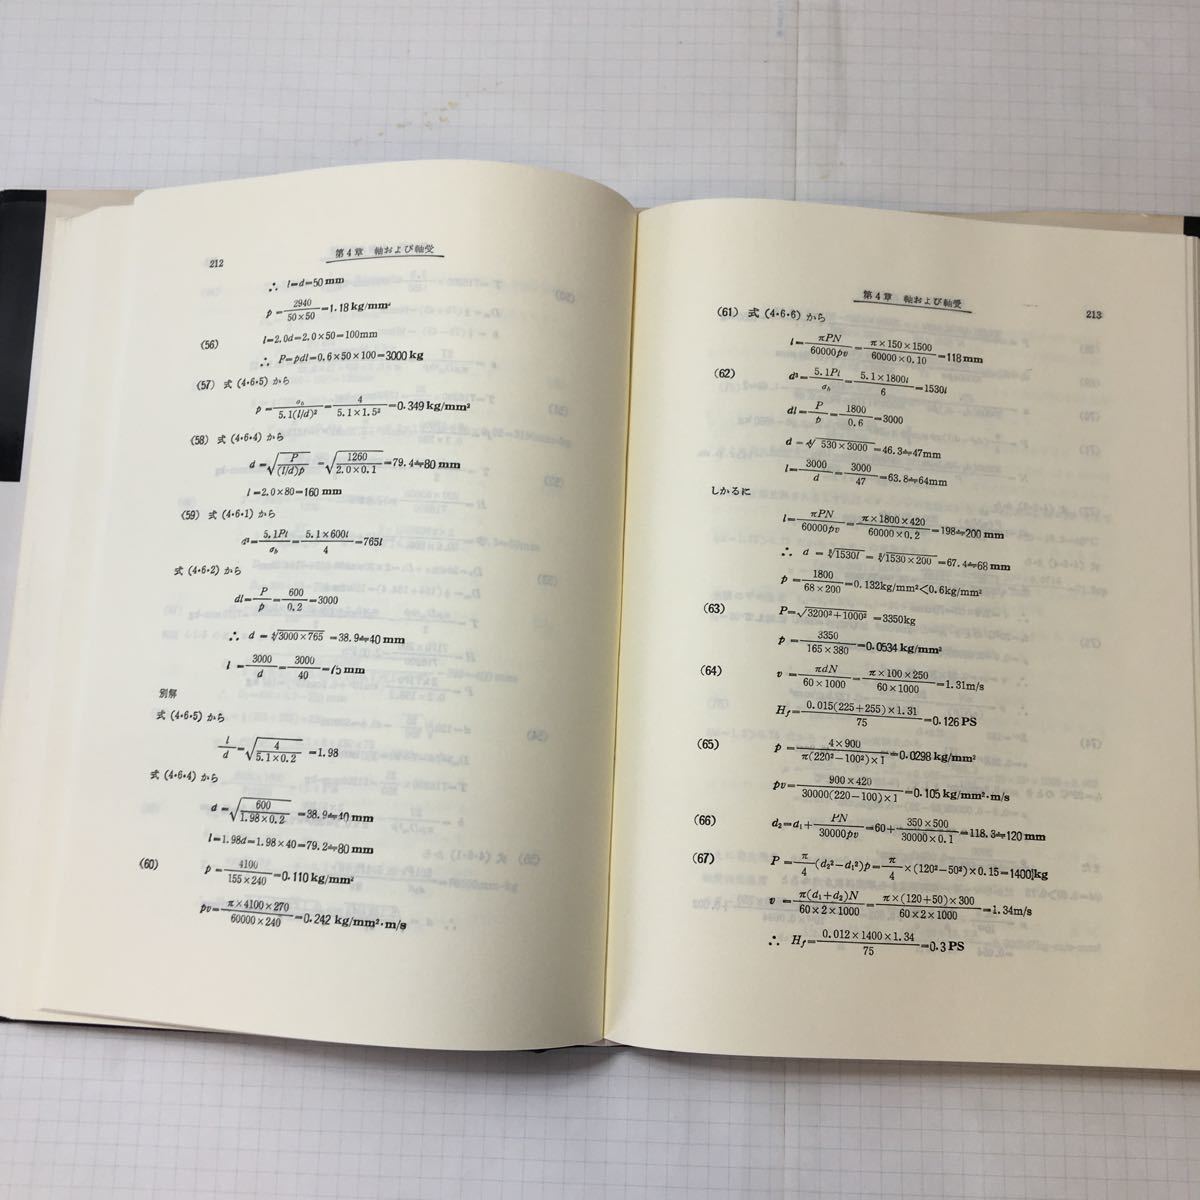 212
第4章 軸および軸受
∴ l=d=50mm
p=2940/(50×50)=1.18kg/mm²
(56) l=2.0d=2.0×50=100mm
∴ P=pdl=0.6×50×100=3000kg
(57) 式(4・6・5)から
p=σb/(5.1(l/d)²)=4/(5.1×1.5²)=0.349kg/mm²
(58) 式(4・6・4)から
d=√(P/((l/d)p))=√(1260/(2.0×0.1))=79.4≒80mm
l=2.0×80=160mm
(59) 式(4・6・1)から
d³=5.1Pl/σb=5.1×600l/4=765l
式(4・6・2)から
dl=P/p=600/0.2=3000
∴ d=∜(3000×765)=38.9≒40mm
l=3000/d=3000/40=75mm
別解
式(4・6・5)から
l/d=√(4/(5.1×0.2))=1.98
式(4・6・4)から
d=√(600/(1.98×0.2))=38.9≒40mm
l=1.98d=1.98×40=79.2≒80mm
(60) p=4100/(155×240)=0.110kg/mm²
pv=π×4100×270/(60000×240)=0.242kg/mm²・m/s
第4章 軸および軸受
213
(61) 式(4・6・6)から
l=πPN/(60000pv)=π×150×1500/(60000×0.10)=118mm
(62) d³=5.1Pl/σb=5.1×1800l/6=1530l
dl=P/p=1800/0.6=3000
d=∜(530×3000)=46.3≒47mm
l=3000/d=3000/47=63.8≒64mm
しかるに
l=πPN/(60000pv)=π×1800×420/(60000×0.2)=198≒200mm
∴ d=∛(1530l)=∛(1530×200)=67.4≒68mm
p=1800/(68×200)=0.132kg/mm²<0.6kg/mm²
(63) P=√(3200²+1000²)=3350kg
p=3350/(165×380)=0.0534kg/mm²
(64) v=πdN/(60×1000)=π×100×250/(60×1000)=1.31m/s
Hf=0.015(225+255)×1.31/75=0.126PS
(65) p=4×900/(π(220²−100²)×1)=0.0298kg/mm²
pv=900×420/(30000(220−100)×1)=0.105kg/mm²・m/s
(66) d₂=d₁+PN/(30000pv)=60+350×500/(30000×0.1)=118.3≒120mm
(67) P=π/4(d₂²−d₁²)p=π/4×(120²−50²)×0.15=1400kg
v=π(d₁+d₂)N/(60×2×1000)=π×(120+50)×300/(60×2×1000)=1.34m/s
∴ Hf=0.012×1400×1.34/75=0.3PS